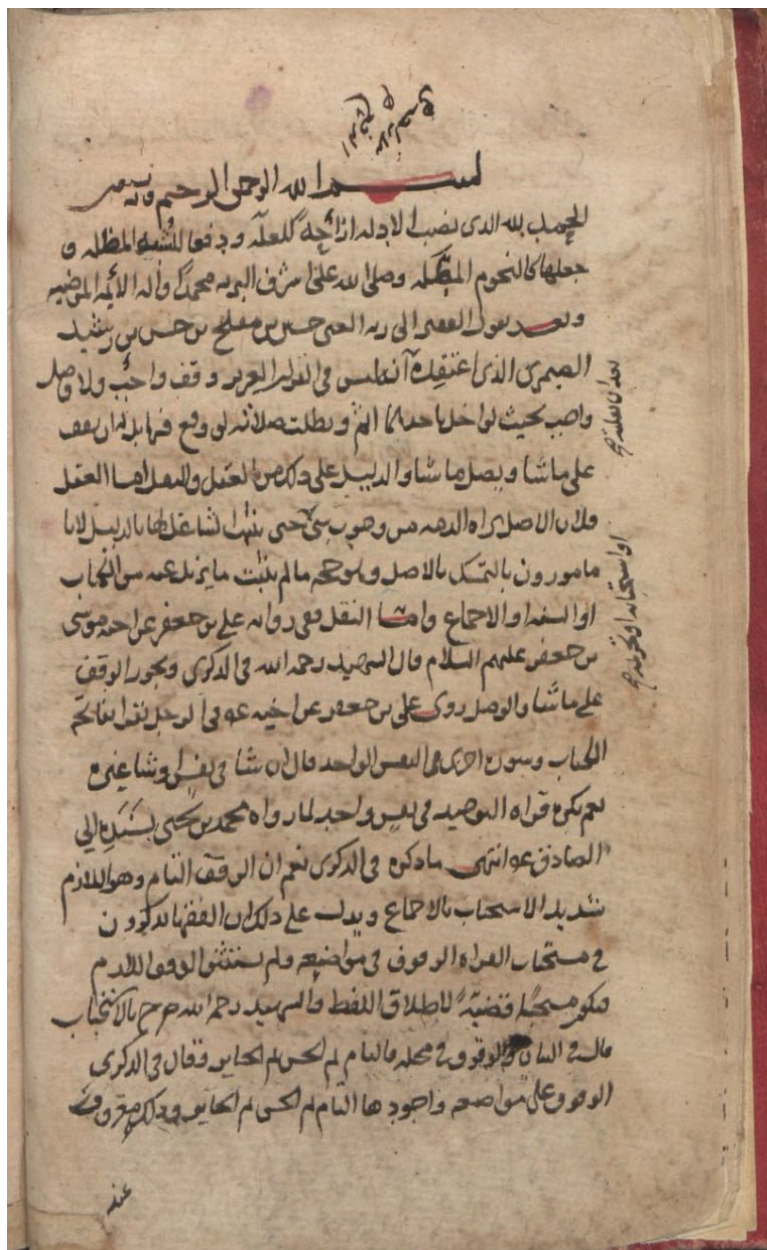 بسم الله الرحمن الرحيم وبه نستعين
الحمد لله الذي نصب الادله ازاحة للعلة ودفعا للشبه المظله و
جعلها كالنجوم وصلى الله على اشرف البريه محمد وآله الائمه المرضيه
وبعد يقول الفقير الى ربه الغني حسين بن مفلح بن حسن بن رشيد
الصيمري الذي اعتقده انه ليس في القران العزيز وقف واجب ولا وصل
واجب بحيث لو اخل باحدهما اثم وبطلت صلاته لو وقع فيها بل له ان يقف
على ما شا ويصل ما شا والدليل على ذلك من العقل والنقل اما العقل
فلان الاصل براة الذمه من وجوب شي حتى بالدليل لانا
مامورون بالتمسك بالاصل ما لم يثبت ما يزيله من الكتاب
او السنه او الاجماع واما النقل ففي رواية علي بن جعفر عن اخيه موسى
بن جعفر عليهم السلام قال الشهيد رحمه الله في الذكرى ويجوز الوقف
على ما شا والوصل روى علي بن جعفر عن اخيه ع في الرجل يقرا بفاتحة
الكتاب وسورة اخرى في النفس الواحد قال ان شا في نفس وان شا غيره
نعم يكره قراه التوحيد في نفس واحد لما رواه محمد بن يحيى بسنده الى
الصادق ع انتهى ما ذكره في الذكرى نعم ان الوقف التام وهو اللازم
شديد الاستحباب بالاجماع ويدل على ذلك ان الفقها يذكرون
في مستحبات القراه الوقوف في مواضعه ولم يستثنوا الوقف اللازم
فيكون مستحبا قضية لاطلاق اللفظ والشهيد رحمه الله صرح بالاستحباب
قال في البيان والوقوف في محله فالتام ثم الحسن ثم الجايز وقال في الذكرى
الوقوف على مواضعه واجودها التام ثم الحسن ثم الجايز وذلك معروف
عند